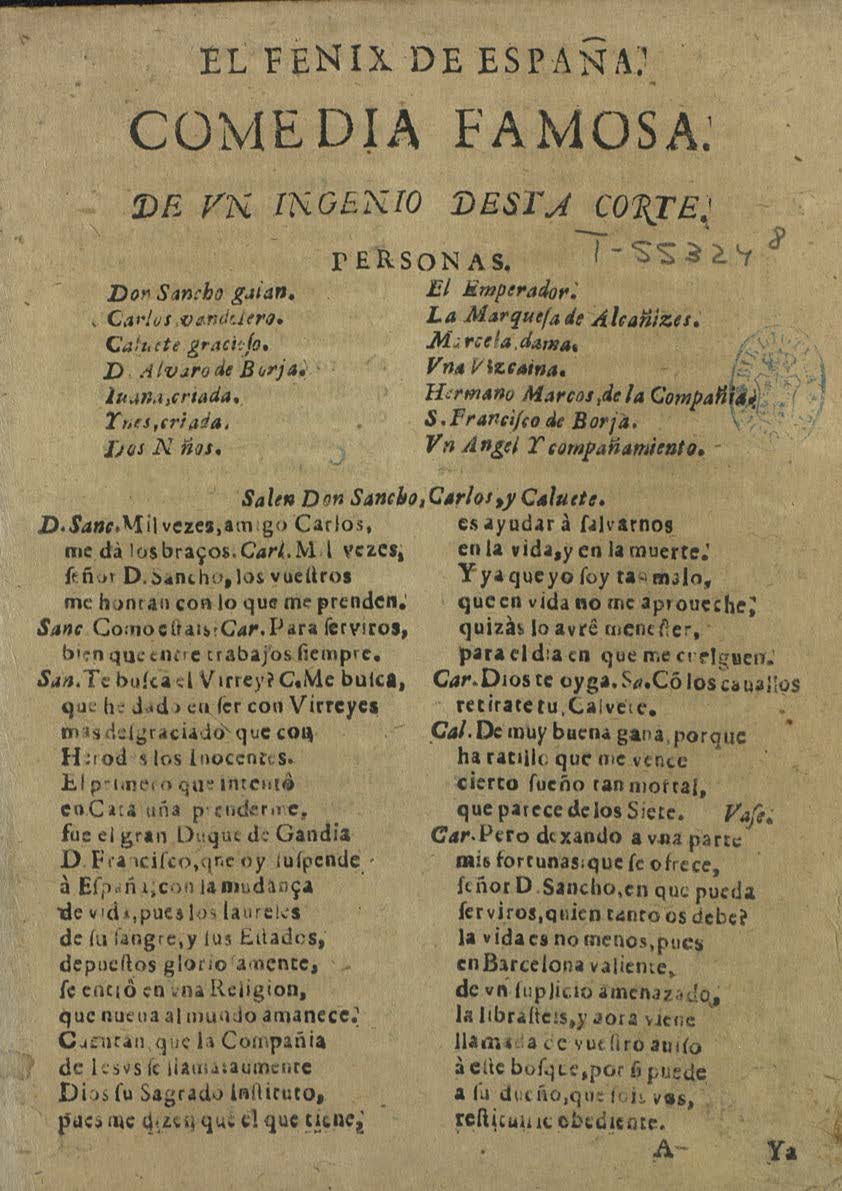 EL FENIX DE ESPAÑA.
COMEDIA FAMOSA.
DE VN INGENIO DESTA CORTE.
T-55324 8
PERSONAS.
Don Sancho galan.
Carlos, vandolero.
Caluete gracioso.
D. Alvaro de Borja.
Iuana, criada.
Ynes, criada.
Dos Niños.
El Emperador.
La Marquesa de Alcañizes.
Marcela, dama.
Vna Vizcaina.
Hermano Marcos, de la Compañia.
S. Francisco de Borja.
Vn Angel Y compañamiento.
Salen Don Sancho, Carlos, y Caluete.
D. Sanc. Mil vezes, amigo Carlos,
me dà los braços. Carl. Mil vezes,
señor D. Sancho, los vuestros
me honran con lo que me prenden.
Sanc. Como estais? Car. Para serviros,
bien que entre trabajos siempre.
San. Te busca el Virrey? C. Me busca,
que he dado en ser con Virreyes
mas desgraciado que con
Herodes los Inocentes.
El primero que intentò
en Cataluña prenderme,
fue el gran Duque de Gandia
D. Francisco, que oy suspende
à España, con la mudança
de vida, pues los laureles
de su sangre, y sus Estados,
depuestos gloriosamente,
se entrò en vna Religion,
que nueua al mundo amanece.
Cuentan, que la Compañia
de Iesvs se llama: aumente
Dios su Sagrado Instituto,
pues me dizen que el que tiene,
es ayudar à salvarnos
en la vida, y en la muerte.
Y ya que yo soy tan malo,
que en vida no me aproueche,
quizàs lo avrè menester,
para el dia en que me cuelguen.
Car. Dios te oyga. Sa. Cõ los cauallos
retirate tu, Calvete.
Cal. De muy buena gana, porque
ha ratillo que me vence
cierto sueño tan mortal,
que parece de los Siete. Vase.
Car. Pero dexando a vna parte
mis fortunas: que se ofrece,
señor D. Sancho, en que pueda
serviros, quien tanto os debe?
la vida es no menos, pues
en Barcelona valiente,
de vn suplicio amenazado,
la librasteis, y aora viene
llamada de vuestro auiso
à este bosque, por si puede
a su dueño, que sois vos,
restituirse obediente.
A
Ya